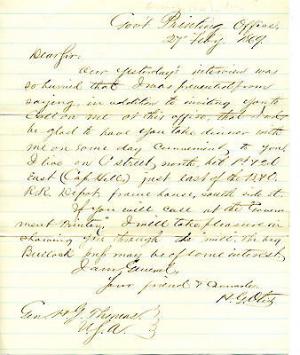 Gov't Printing Office,
27 Feby. 1869.
Dear Sir.
Our yesterday's interview was
so hurried that I was prevented from
saying, in addition to inviting you to
call on me at this office, that I should
be glad to have you take dinner with
me on some day convenient to you.
I live on C street, north, bet 1st & 2d
East (Cap. Hill) just east of the B&O.
R.R. Depot, frame house, south side st.
If you will call at the "Govern-
ment Printery" I will take pleasure in
showing you through the mill. The big
Bullock press may be of some interest.
I am, General,
Your friend &
H. G.
Gen. H. G. Thomas
U.S.A.